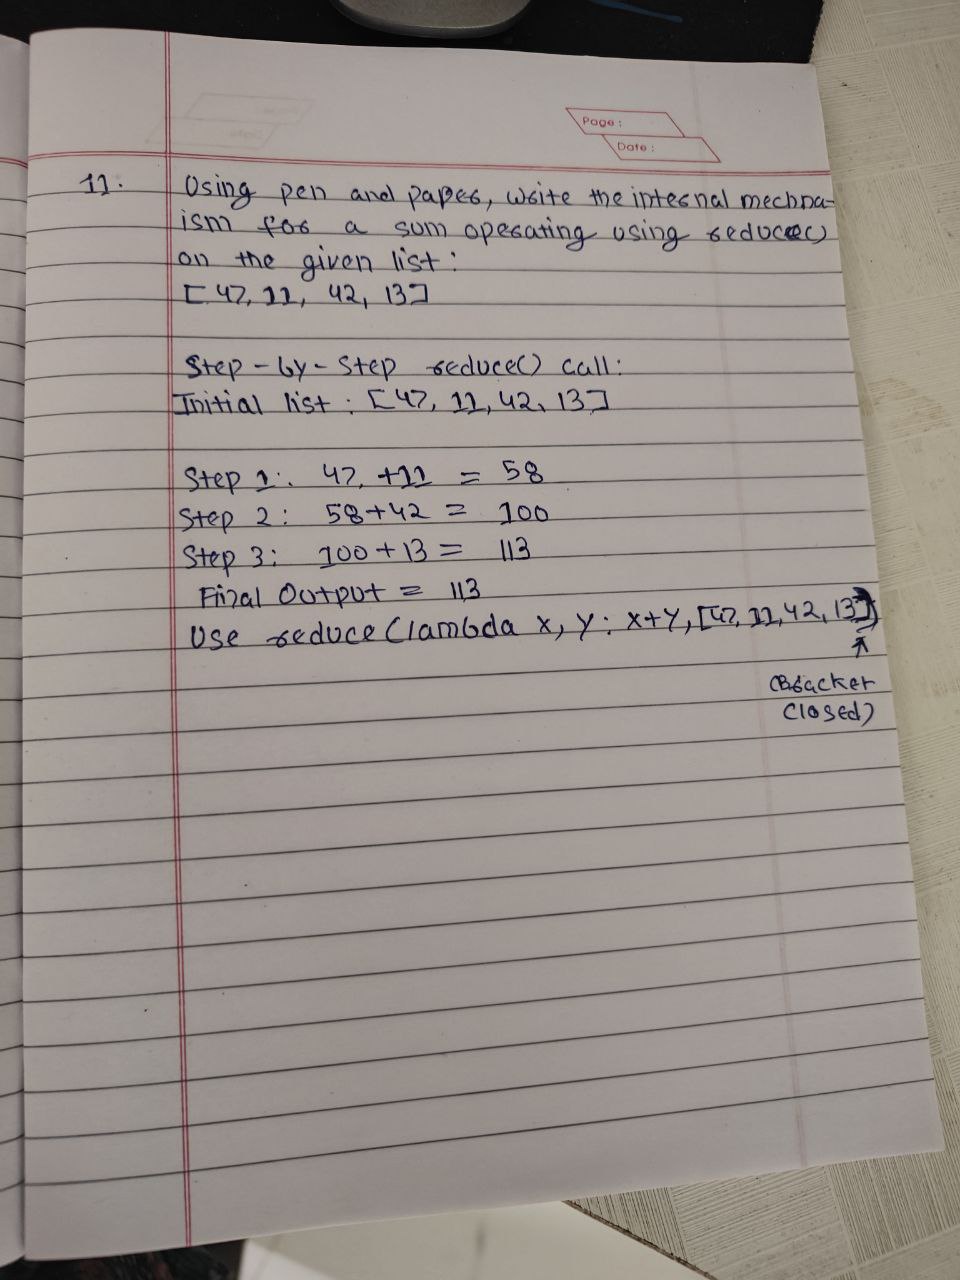 Page :
Date :
11. Using pen and paper, write the internal mechna-
ism for a sum operating using reduce()
on the given list :
[47, 11, 42, 13]
Step - by - Step reduce() call :
Initial list : [47, 11, 42, 13]
Step 1 : 47 + 11 = 58
Step 2 : 58 + 42 = 100
Step 3 : 100 + 13 = 113
Final Output = 113
Use reduce (lambda x, y : x+y, [47, 11, 42, 13])
(Bracker
Closed)